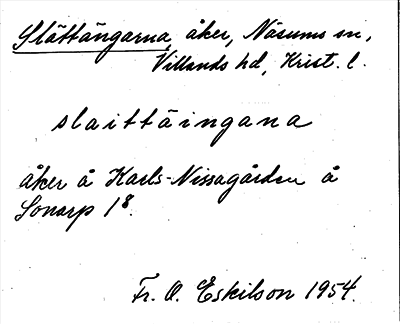 Slättängarna åker, Näsums sn,
Villands hd, Krist. l.
slaittäingana
åker å Karls-Nissagården å
Sonarp 1⁸.
Fr. O. Eskilson 1954.